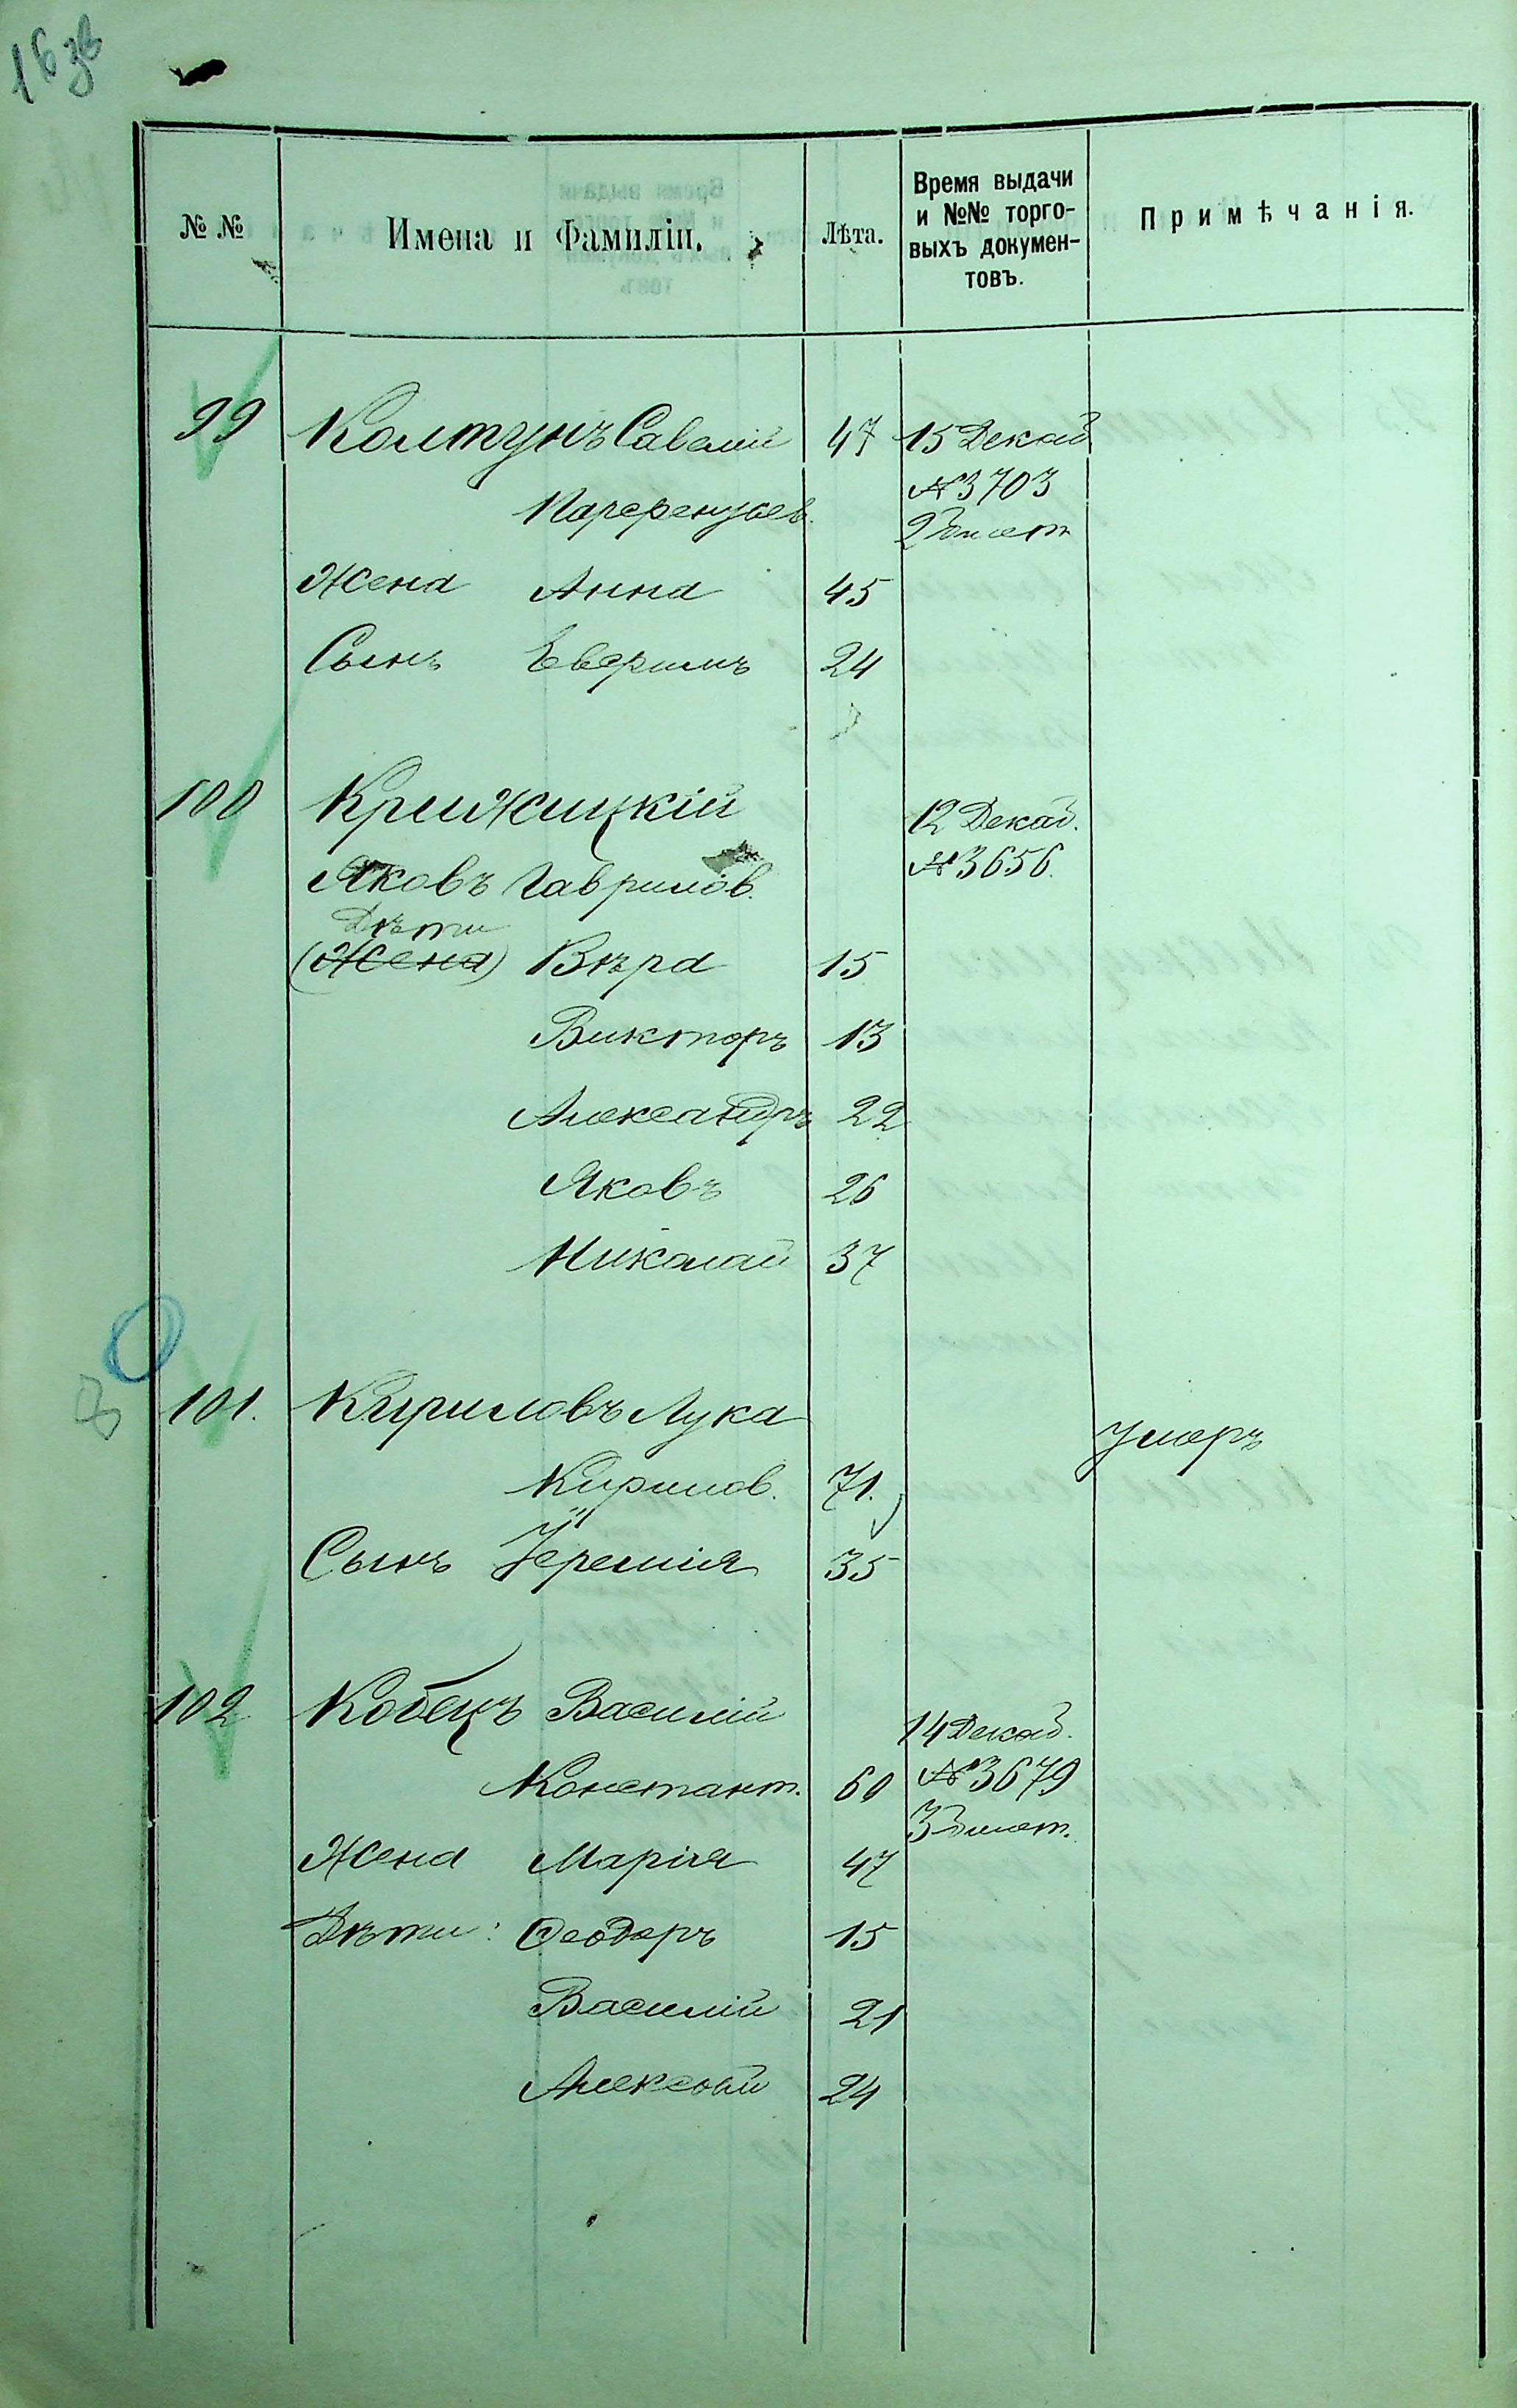 16 зв
№ №
Имена и Фамиліи.
Лѣта.
Время выдачи
и №№ торго-
выхъ докумен-
товъ.
Примѣчанія.
99 Колтунъ Савелій 47 15 Декаб
№ 3703
Парфентьев.
2 билет
Жена Анна 45
Сынъ Евфимъ 24
100 Крижицкій 12 Декаб.
Яковъ Гаврилов. № 3656.
Дѣти
(Жена) Вѣра 15
Викторъ 13
Александръ 22
Яковъ 26
Николай 37
101. Кириловъ Лука
Умеръ
Кирилов. 71.
Сынъ Іеремія 35
102 Кобецъ Василій
14 Декаб.
Константин. 60 № 3679
3 билет.
Жена Марія 47
Дѣти: Ѳеодоръ 15
Василій 21
Алексѣй 24